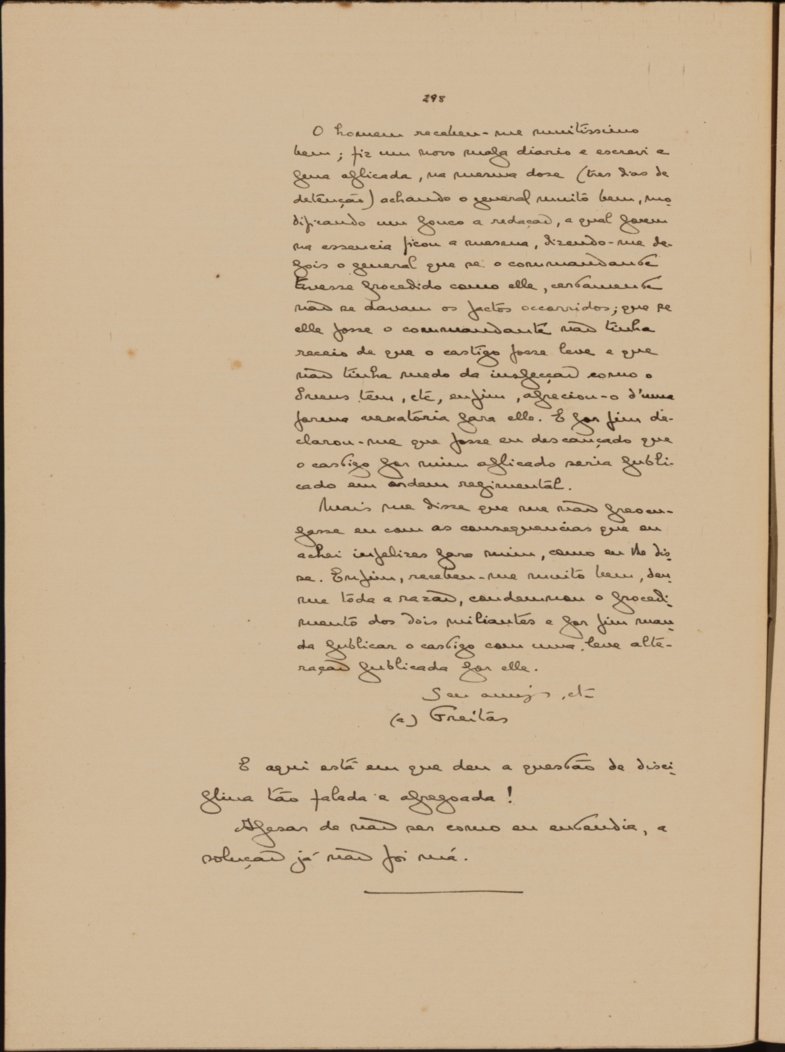 298
O homem recebeu-me muitissimo
bem; fiz um novo mapa diario e escrevi a
pena applicada, na mesma dose (tres dias de
detenção) achando o general muito bem, mo-
dificando um pouco a redação, a qual porem
na essencia ficou a mesma, dizendo-me de-
pois o general que se o commandante
tivesse procedido como elle, certamente
não se davam os factos occorridos; que se
elle fosse o commandante não tinha
receio de que o castigo fosse leve e que
não tinha medo da inspecção como o
tem, etc, enfim, apreciou-o d'uma
forma vexatoria para elle. E por fim de-
clarou-me que fosse eu descançado que
o castigo por mim applicado seria publi-
cado em ordem regimental.
Mais me disse que me não preocu-
passe eu com as consequencias que eu
achei infelizes para mim, como eu lhe dis-
se. Enfim, recebeu-me muito bem, deu-
me toda a razão, condemnou o procedi-
mento dos dois meliantes e por fim man-
da publicar o castigo com uma leve alte-
ração publicada por elle.
Seu amigo, etc
(a) Freitas
E aqui está em que deu a questão de disci-
plina tão falada e apregoada!
Apesar de não ser como eu entendia, a
solução já não foi má.